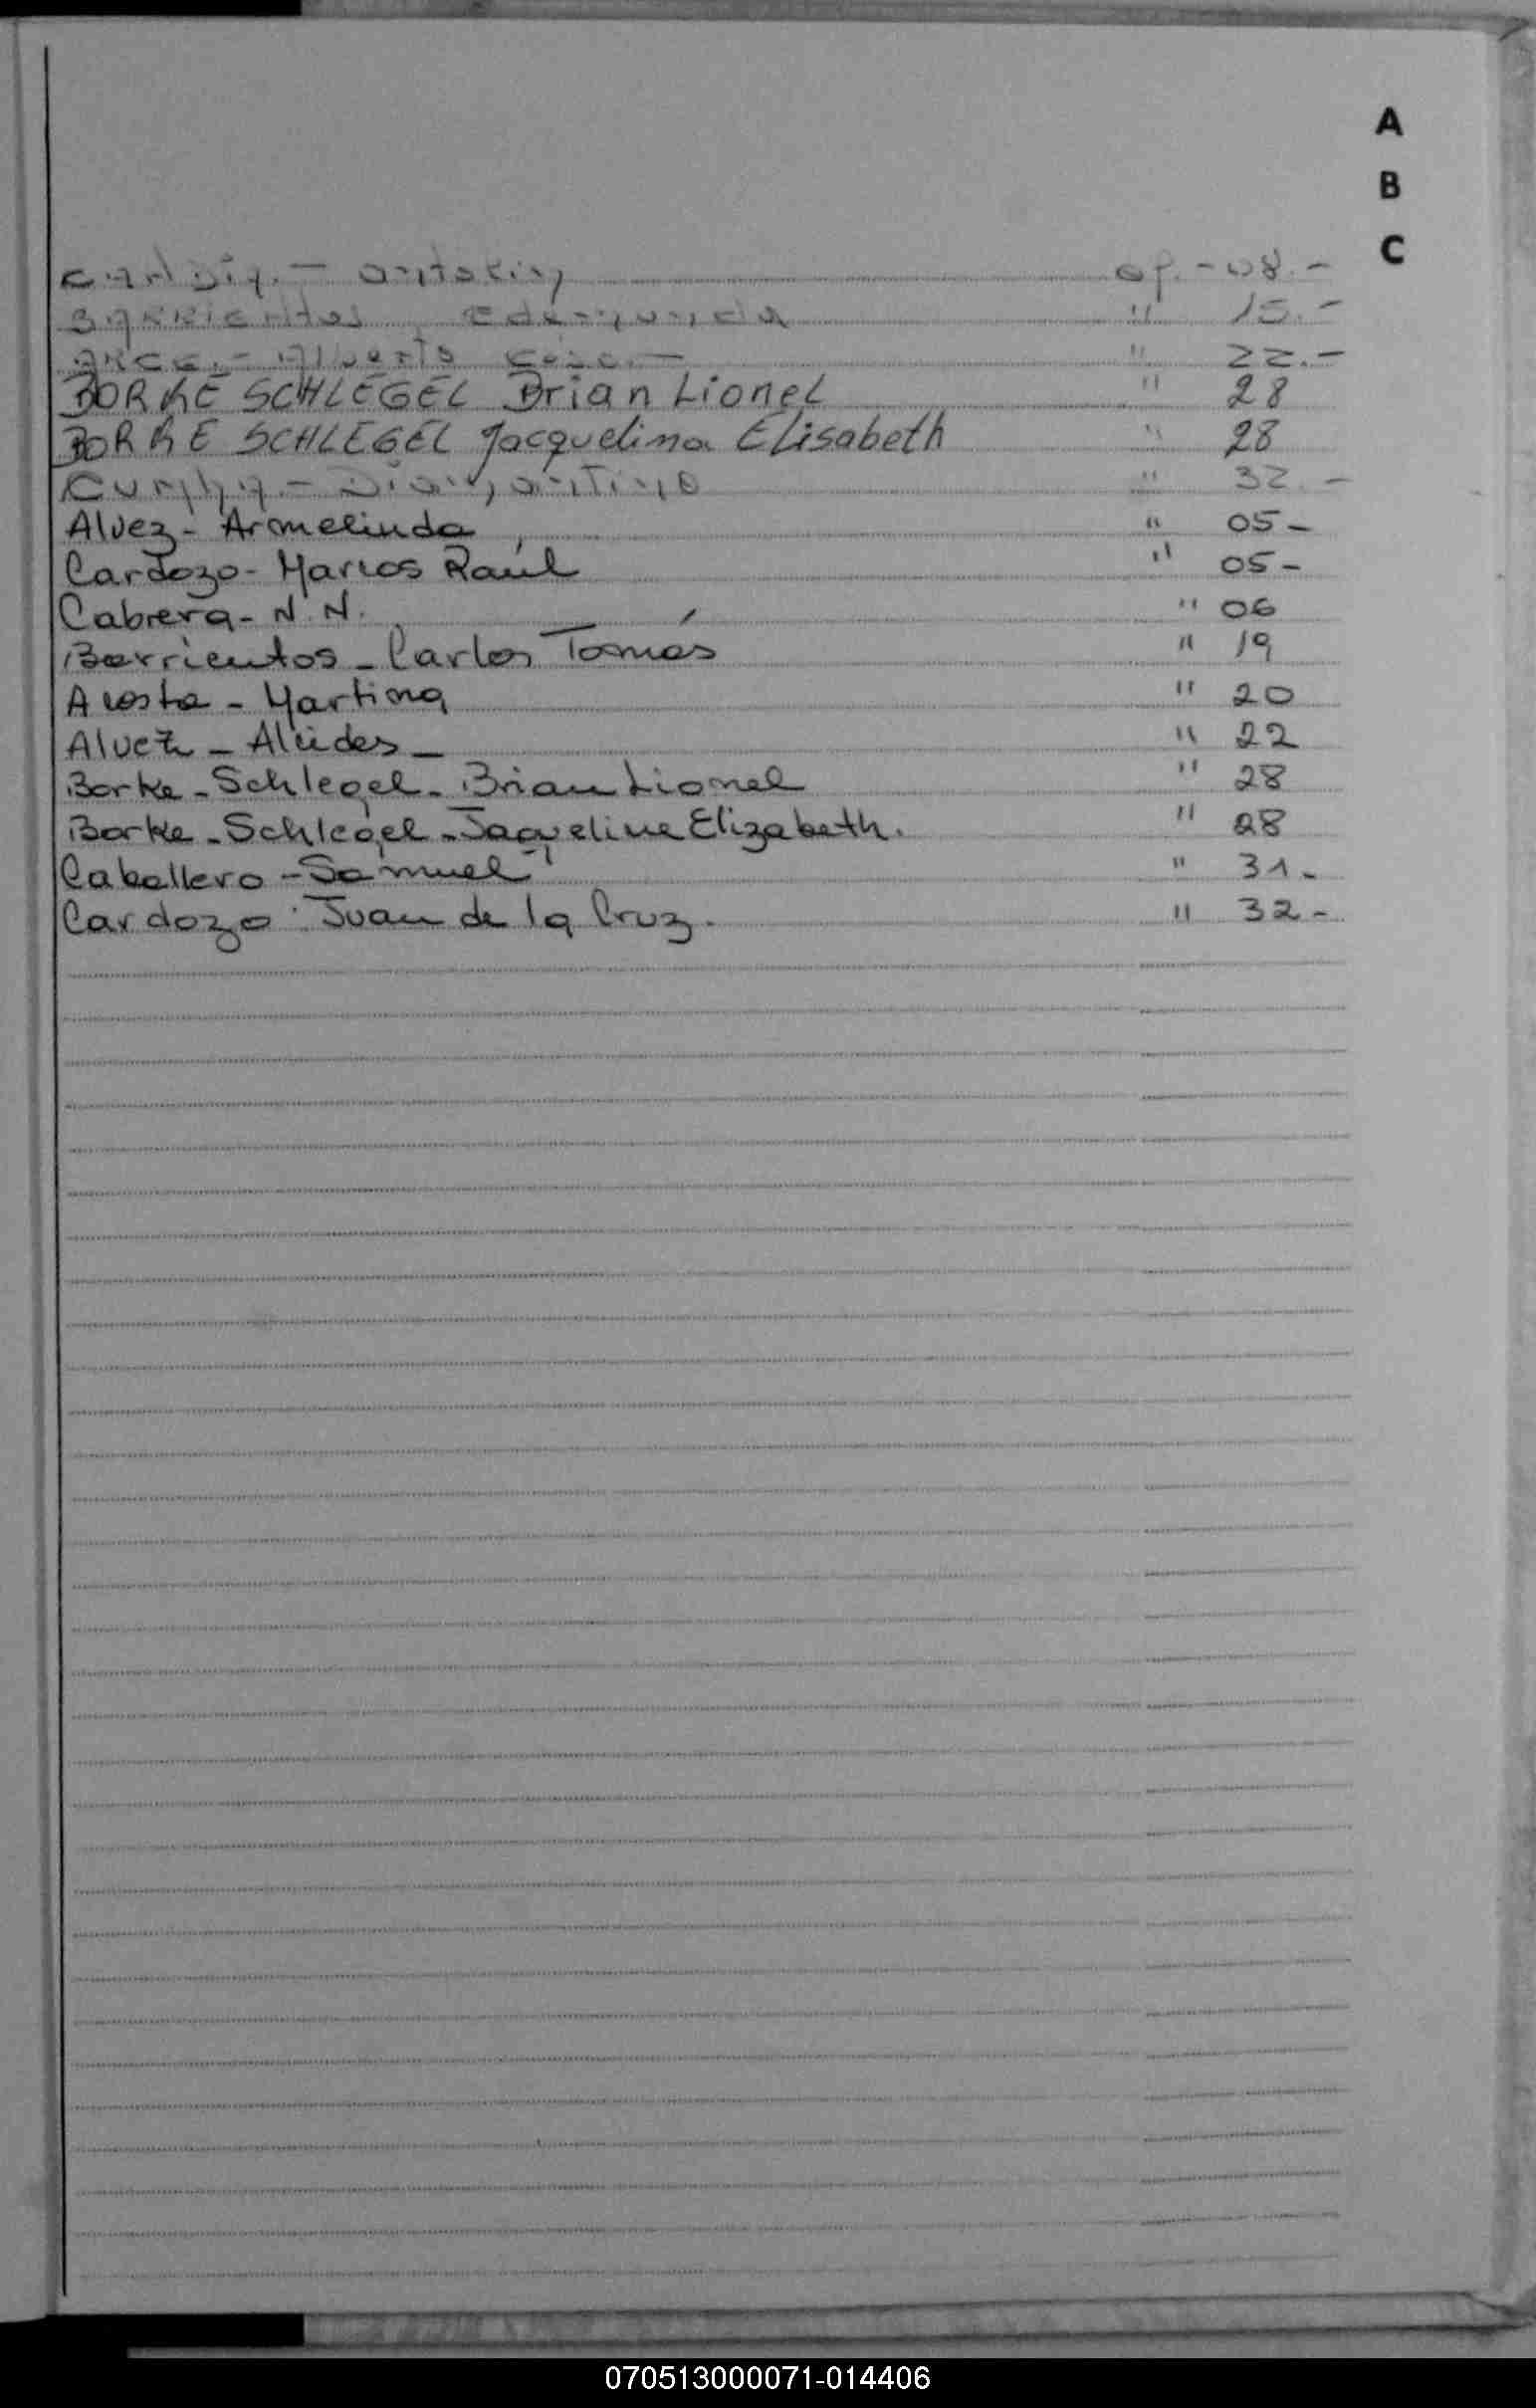 A
B
C
08.-
Barrientos " 15.-
Arce.- Alberto " 22.-
BORKE SCHLEGEL Brian Lionel " 28
BORKE SCHLEGEL Jacquelina Elisabeth " 28
" 32.-
Alvez - Armelinda " 05-
Cardozo - Marcos Raúl " 05-
Cabrera - N.N. " 06
Barrientos - Carlos Tomás " 19
Acosta - Martina " 20
Alvez - Alcides - " 22
Borke - Schlegel - Brian Lionel " 28
Borke - Schlegel - Jaqueline Elizabeth. " 28
Caballero - Samuel " 31-
Cardozo Juan de la Cruz. " 32-
070513000071-014406